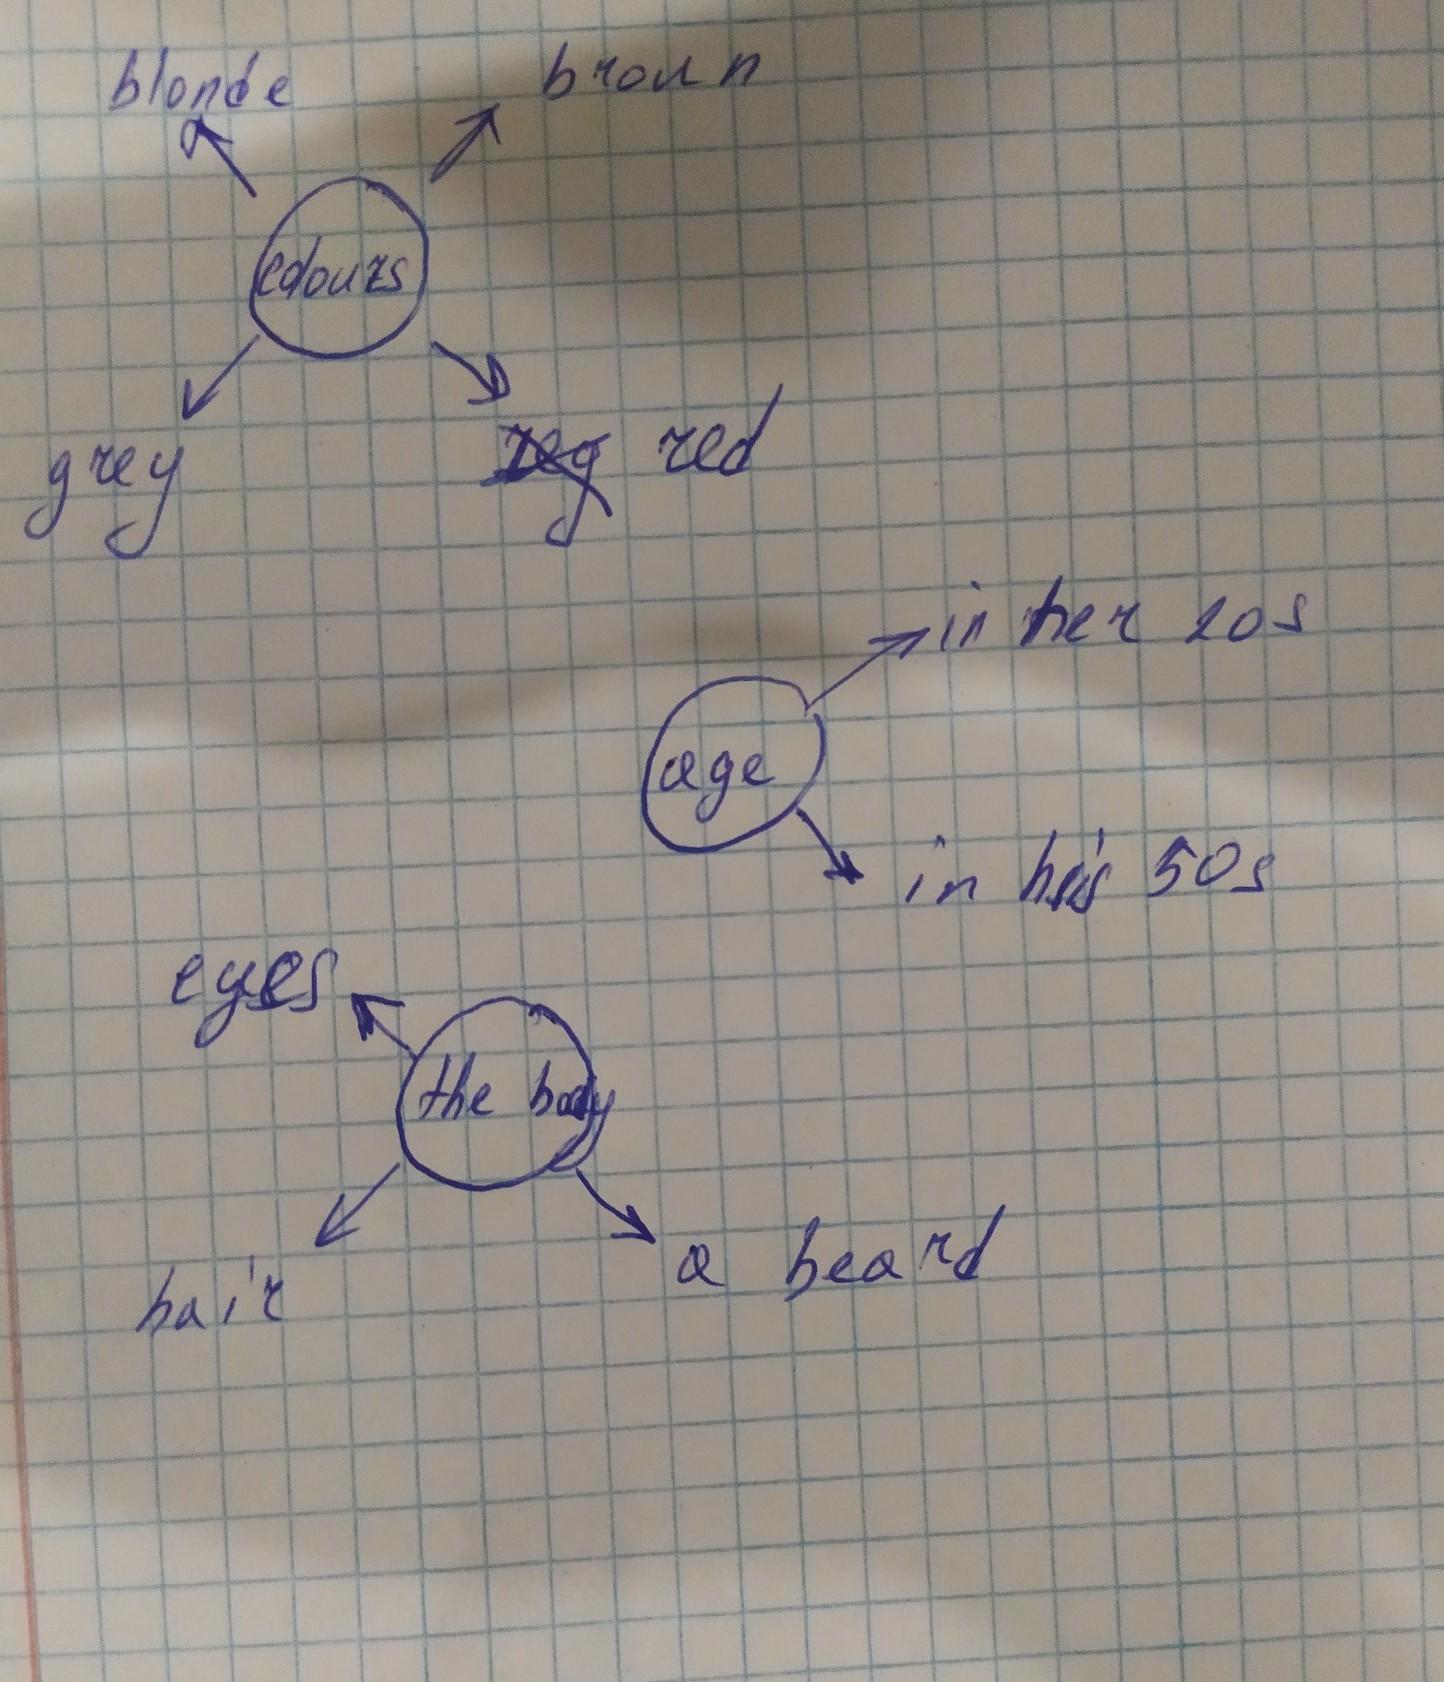 blonde
broun
colours
grey
red
in her 20s
age
in his 50s
eyes
the body
hair
a beard